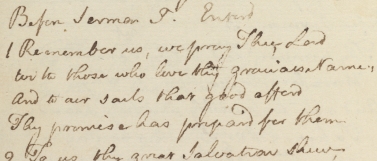 Before Sermon Entered
1 Remember us, we pray Thee Lord
with those who love thy gracious Name,
And to our souls that good afford
Thy promise has prepaid for them
2 To us thy great Salvation shew,